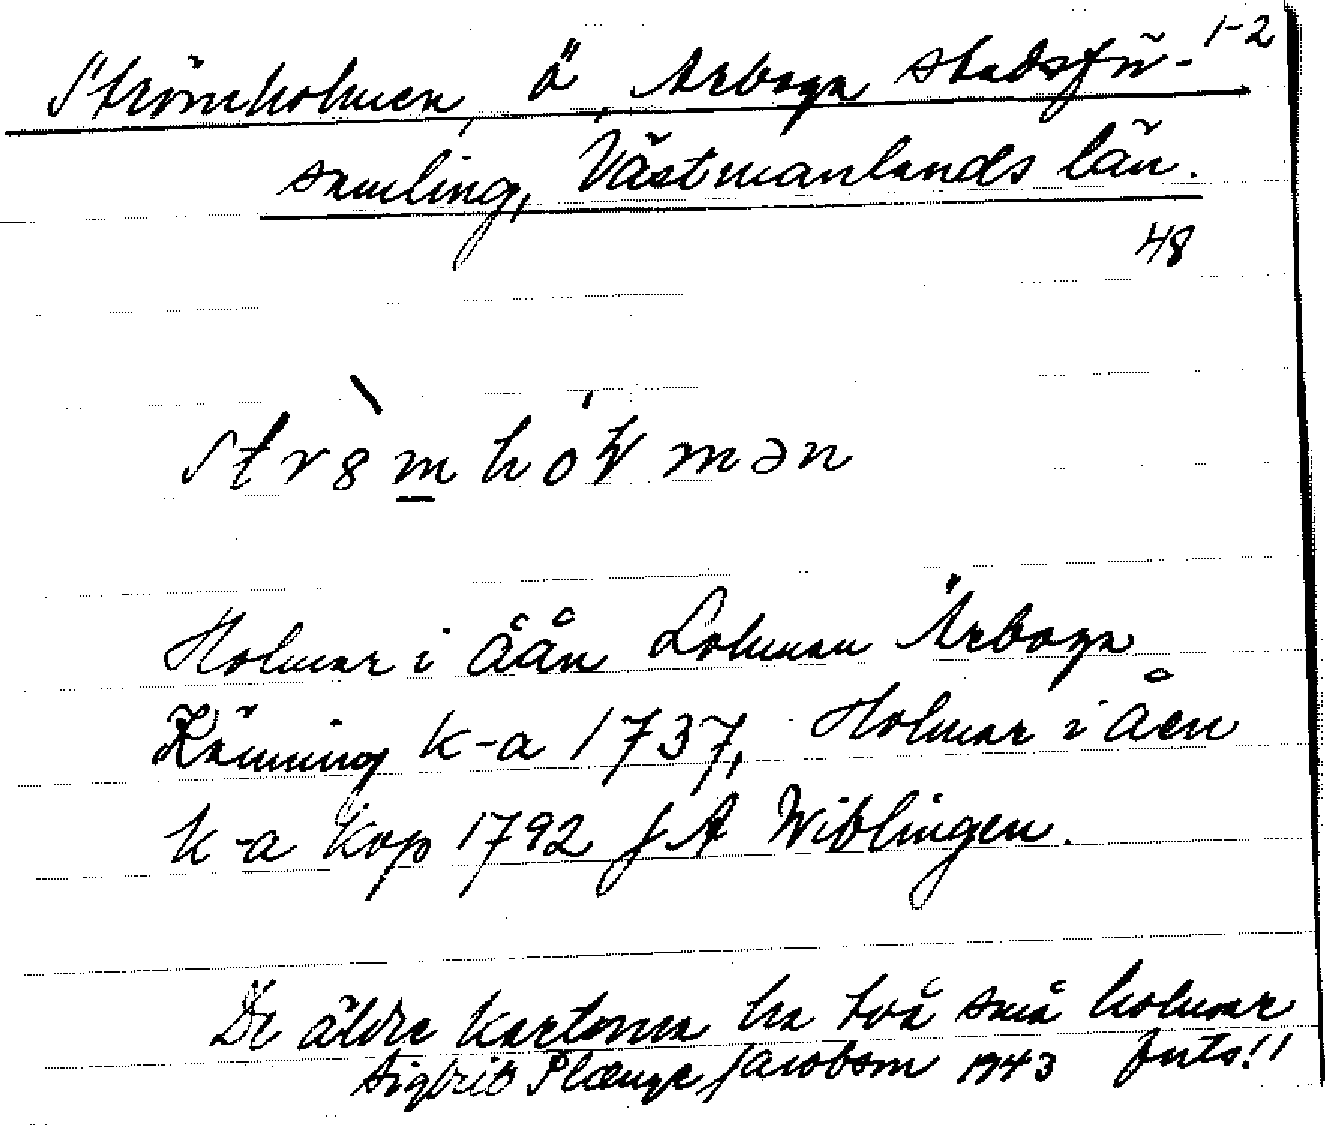 1-2
Strömholmen, ö, Arboga stadsför-
samling, Västmanlands län.
48
Holmar i Åån Lohman Arboga
Känning k-a 1737, Holmar i Åen
k-a kop 1792 J A Wiblingen.
De äldre kartorna ha två små holmar
Sigbrit Plænge Jacobson 1943 forts!!